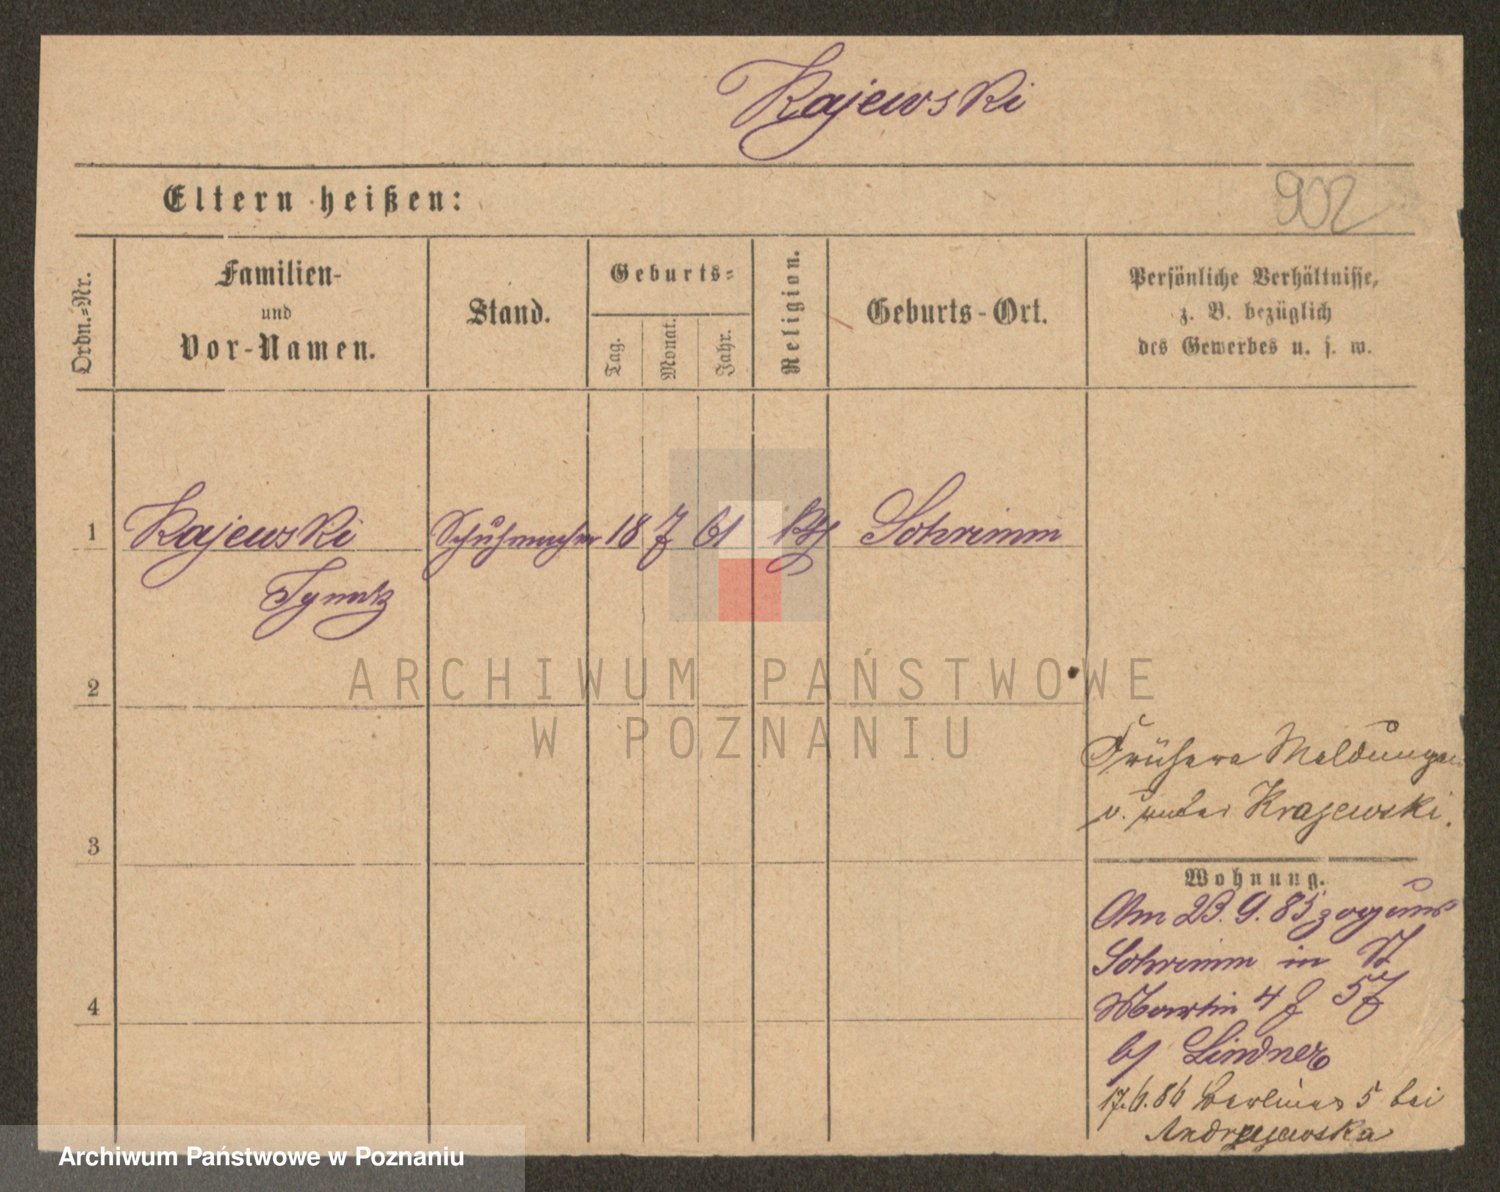 Kajewski
Eltern heißen:
902
Ordn.-Nr.
Familien-
und
Vor-Namen.
Stand.
Geburts-
Tag.
Monat.
Jahr.
Religion.
Geburts-Ort.
Persönliche Verhältnisse,
z. B. bezüglich
des Gewerbes u. s. w.
1 Kajewski Schuhmacher 18 7 61 kth Schrimm
Ignatz
2
3
4
Frühere Meldungen
v. unter Krajewski.
Wohnung.
Am 23. 9. 85 zog aus
Schrimm in St
Martin 4
bei Lindner
17.6.86 Berliner 5 bei
Andrzejewska
ARCHIWUM PAŃSTWOWE
W POZNANIU
Archiwum Państwowe w Poznaniu